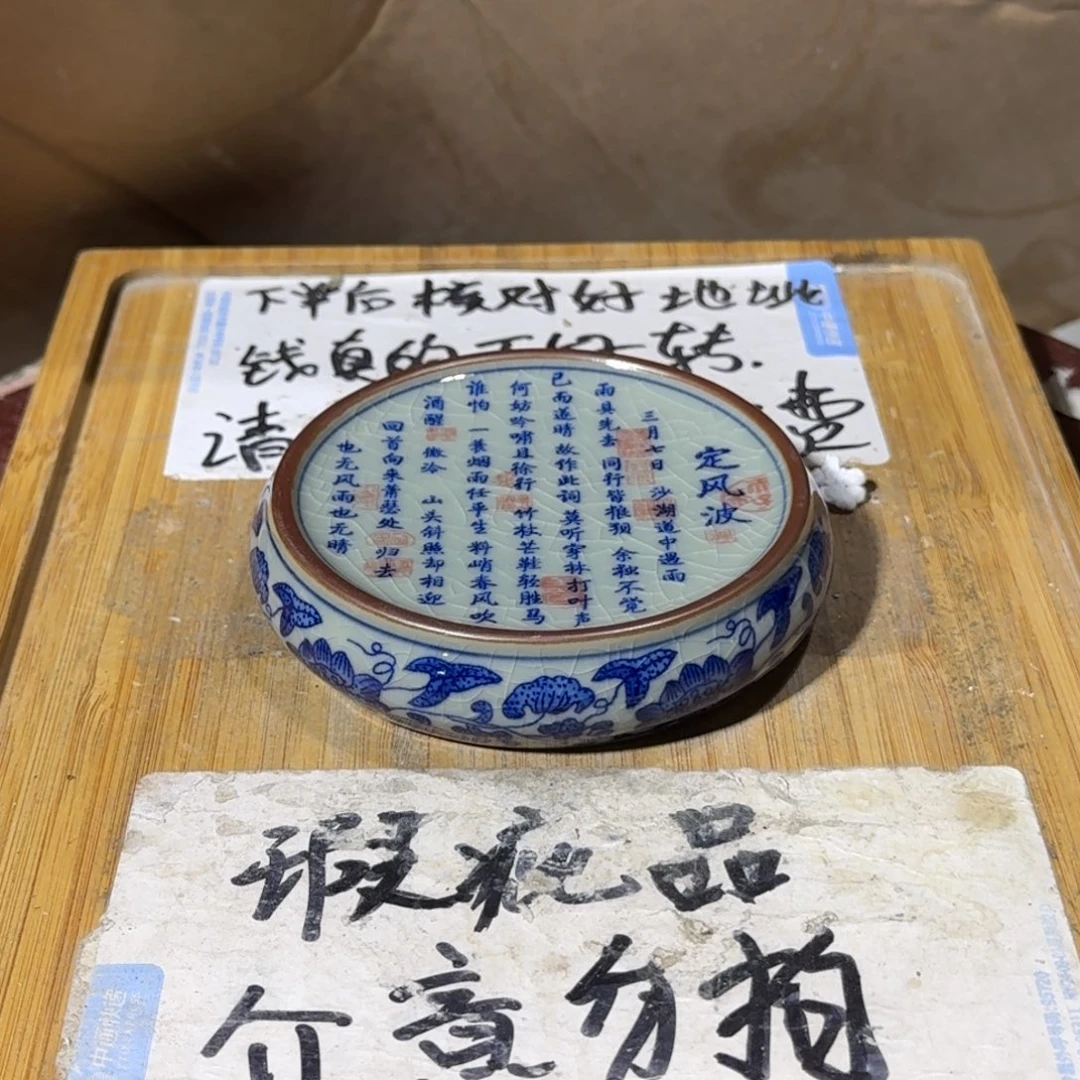 下单后核对好地址
钱真的不好转.
清
定风波
三月七日 沙湖道中遇雨
雨具先去 同行皆狼狈 余独不觉
已而遂晴 故作此词 莫听穿林打叶声
何妨吟啸且徐行 竹杖芒鞋轻胜马
谁怕 一蓑烟雨任平生 料峭春风吹
酒醒 微冷 山头斜照却相迎
回首向来萧瑟处 归去
也无风雨也无晴
瑕疵品
介意勿拍
中通快递